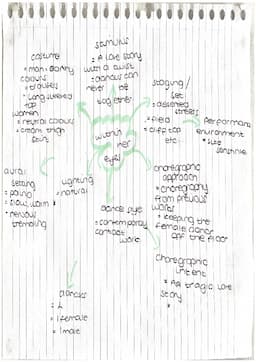 costume
• man - earthy
colours
• trousers
• long sleeved
top
women
• neutral colours
• cream thigh
skirt
stimulus
• A love story
with a twist
• dancers can
never be
together
staging/
set
• deserted
streets
• field
• cliff top
etc.
Performance
environment
• site
sensitive
within
her
eyes
aural
setting
• piano
• slow, warm
• nervous
trembling
lighting
• natural
dance style
• contemporary
contact
work
choreographic
approach
• choreography
from previous
works
• keeping the
female dancer
off the floor
choreographic
intent
• tragic love
story
•
dancers
• 2
• 1 female
• 1 male